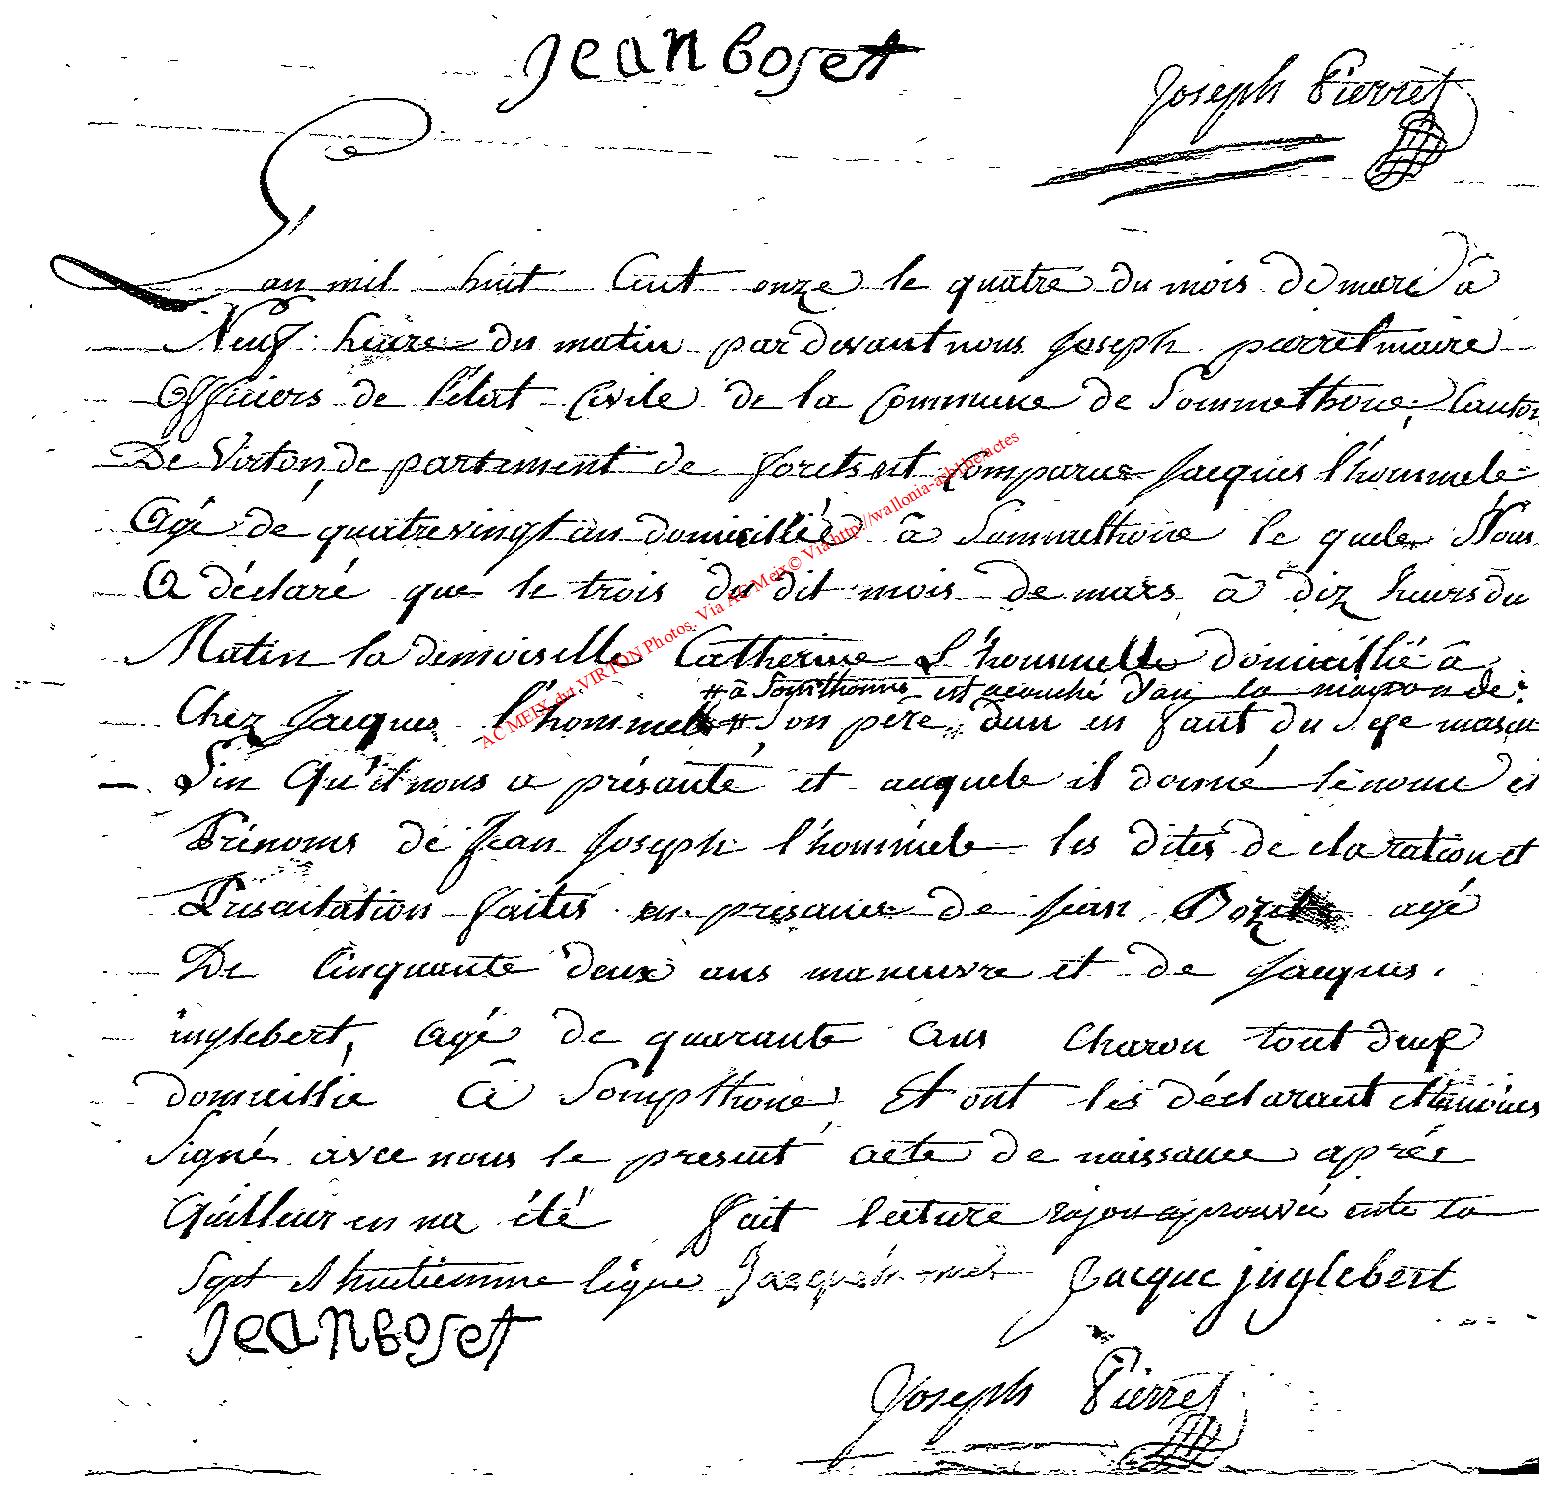 jean boset
Joseph Pierret
L'an mil huit Cent onze le quatre du mois de mars à
Neuf heure du matin par devant nous Joseph pierret maire
Officiers de l'état Civile de la Commune de Sommethone, Canton
De Virton, departement de forets est Comparue Jacques l'hommele
Agé de quatrevingt an domicilliéz à Sommethone le quele Nous
A déclaré que le trois du dit mois de mars à diz heurs du
Matin la demoiselle Catherine L'hommelle domicillié à
# à Sompthonne est acouché dan la maison de
Chez Jacques l'hommele # Son pere, dun en fant du Sexe mascu
Lin Qu'il nous a présanté et auquele il donné le nome et
Prénoms de Jean Joseph l'hommele les dites de claration et
Présantation faites en présance de jean Bozet agé
De Cinquante deux ans maneuvre et de Jacques
inglebert, Agé de quarante Ans Charon tout deux
domicillié à Sompthone, Et ont les déclarant et temoines
Signé avec nous le present acte de naissance aprée
Quilleur en na été fait lecture rajou aprouvée ente la
Sept et huitiemme ligne Jacque jnglebert
jean boset
Joseph Pierret
AC MEIX dvt VIRTON Photos. Via AC Meix© Via http://wallonia-asbl.be/actes